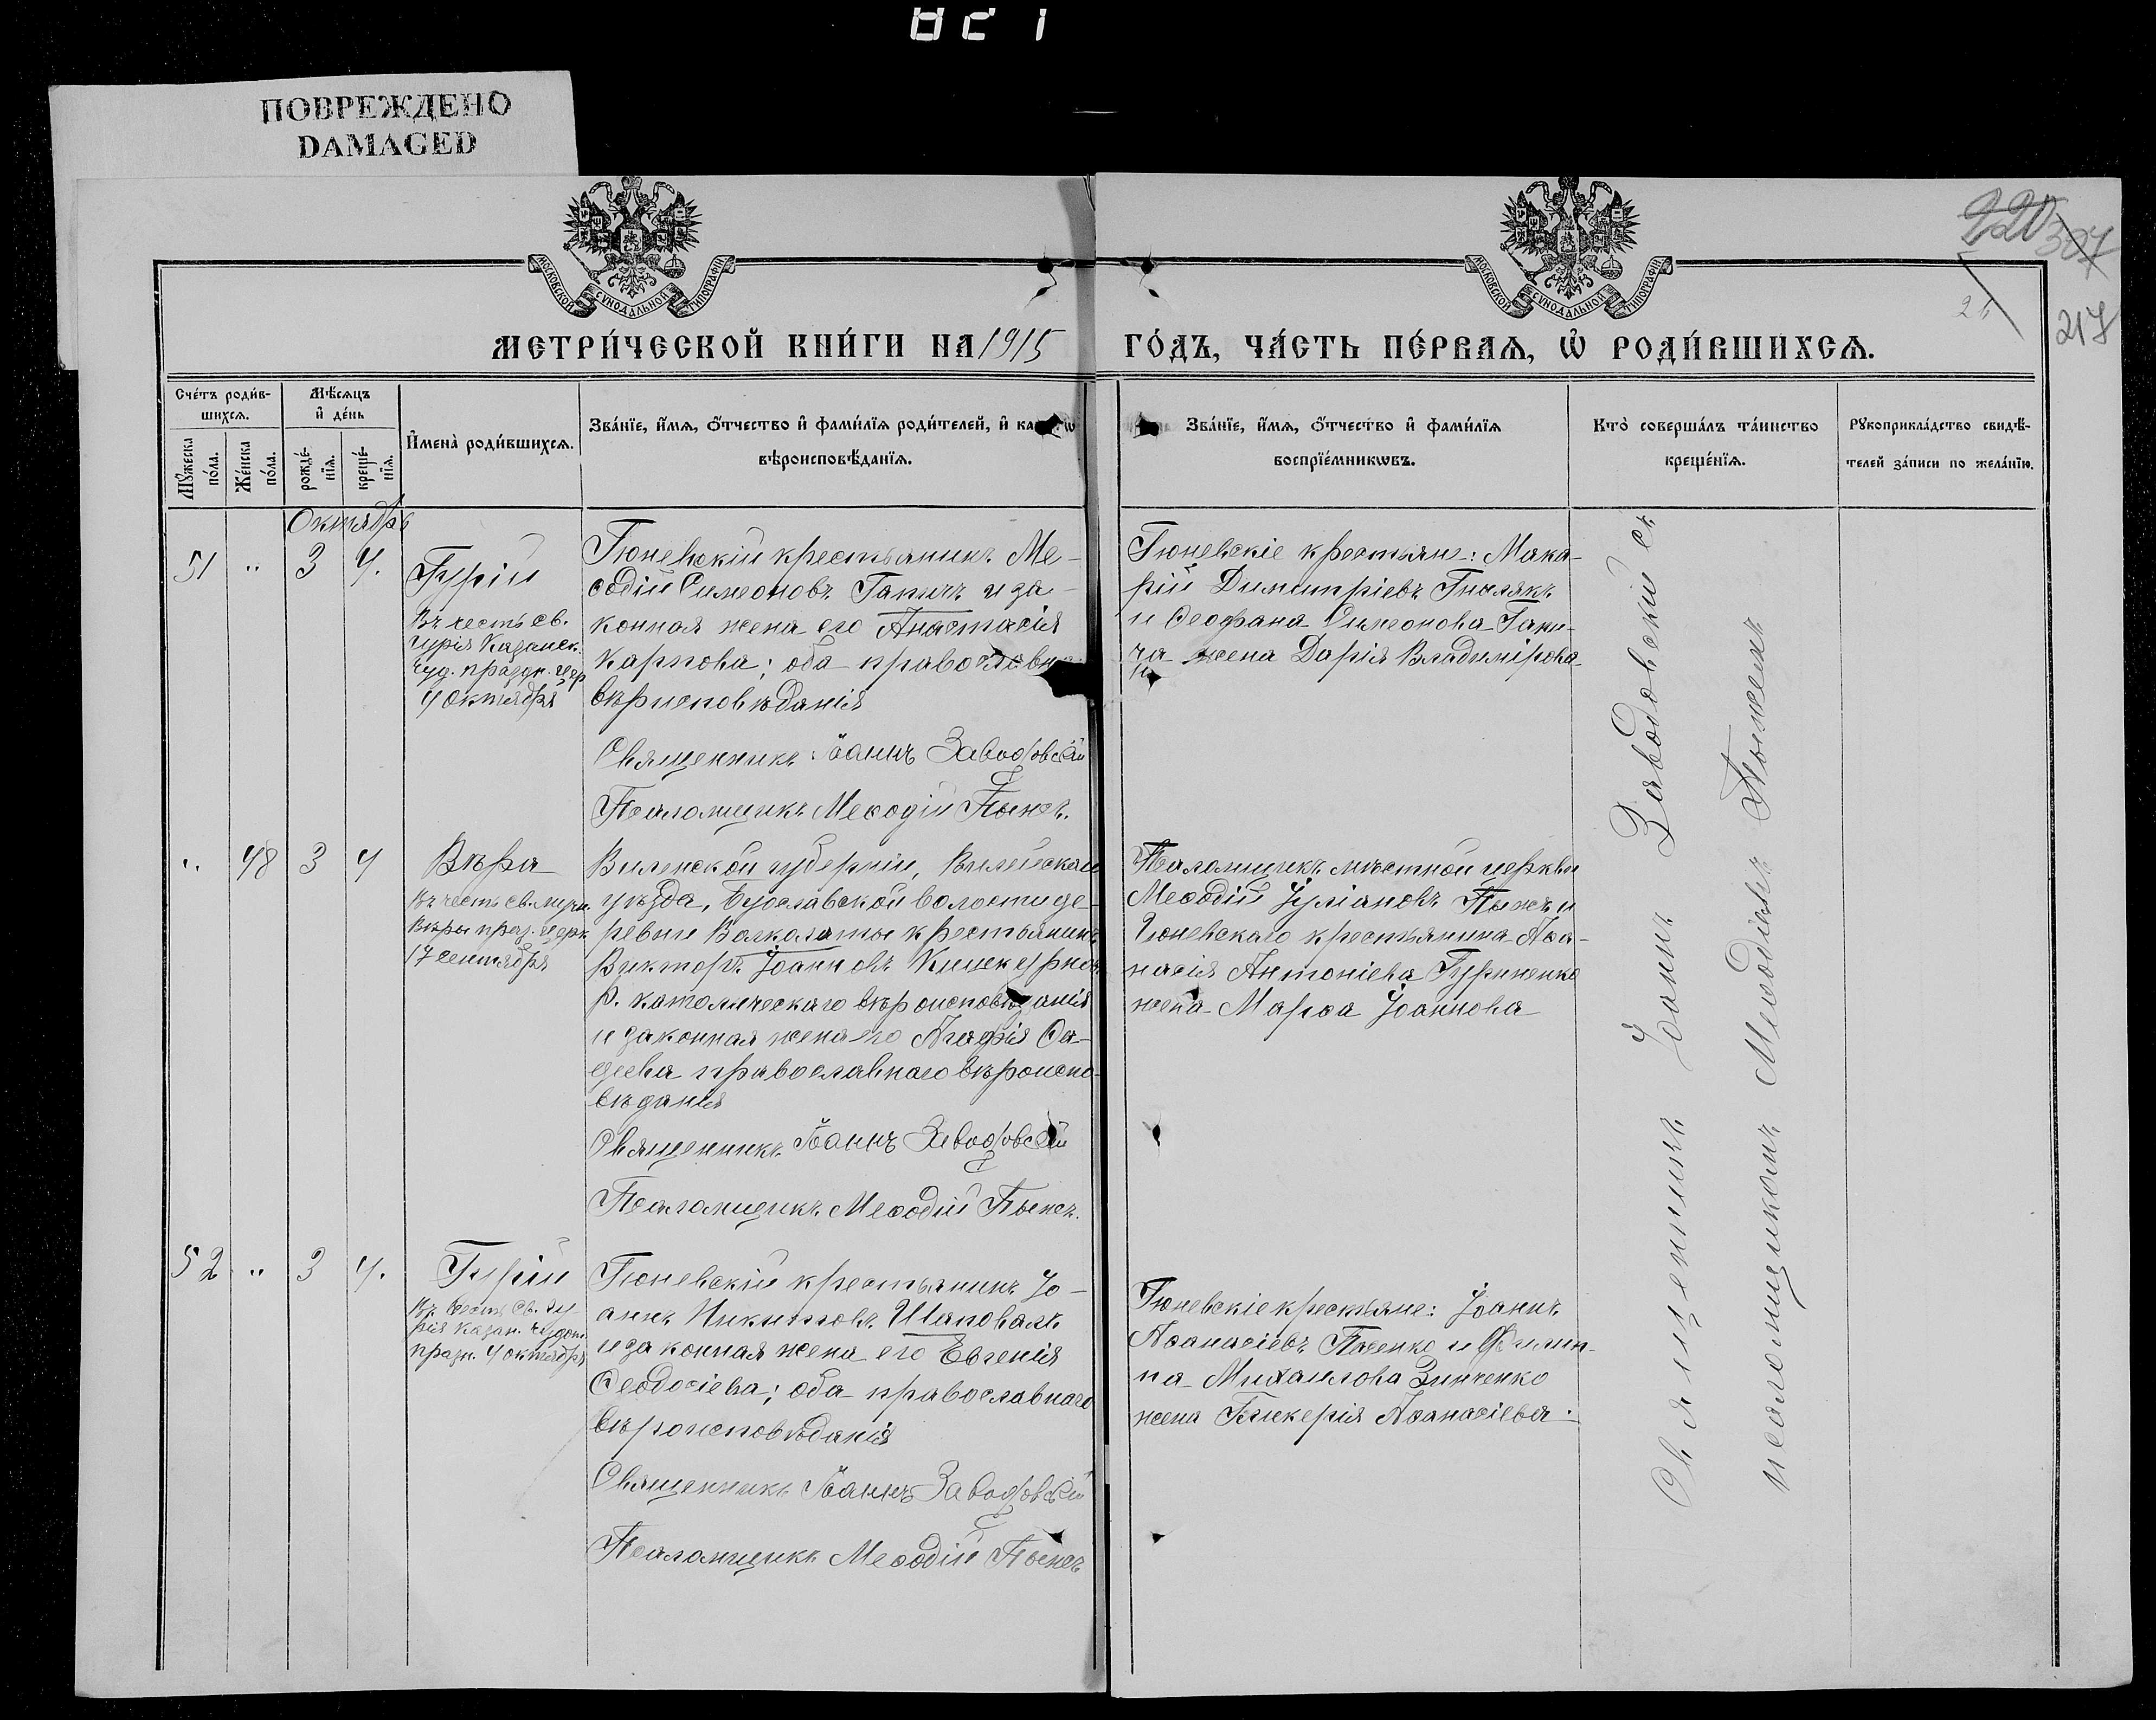 ПОВРЕЖДЕНО
DAMAGED
217
МОСКОВСКОЙ СУНОДАЛЬНОЙ ТИПОГРАФІИ
МОСКОВСКОЙ СУНОДАЛЬНОЙ ТИПОГРАФІИ
МЕТРИ́ЧЕСКОЙ КНИ́ГИ НА 1915 ГО́ДЪ, ЧА́СТЬ ПЕ́РВАѦ, Ѡ҆ РОДИ́ВШИХСѦ.
Сче́тъ роди́в-
шихсѧ.
Мꙋжеска
по́ла.
Же́нска
по́ла.
Мѣ́сѧцъ
и҆ де́нь
рожде́-
нїѧ.
креще́-
нїѧ.
И҆мена̀ роди́вшихсѧ.
Зва́нїе, и҆́мѧ, ѻ҆́тчество и҆ фами́лїѧ роди́телей, и҆
вѣроисповѣ́данїѧ.
Зва́нїе, и҆́мѧ, ѻ҆́тчество и҆ фами́лїѧ
воспрїе́мникѡвъ.
Кто̀ соверша́лъ та́инство
креще́нїѧ.
Рꙋкоприкла́дство свидѣ́-
телей за́писи по жела́нїю.
Октябрь
51 " 3 4.
Гурій
Въ честь св.
Гурія Казанск.
чуд. праздн. цер
4 октября
Гюневскій крестьянинъ Ме-
ѳодій Симеоновъ Ганичъ и за-
конная жена его Анастасія
Карпова; оба православн
вѣрисповѣданія
Священникъ Іоаннъ Заводовскій
Псаломщикъ Меѳодій Пыжъ.
Гюневскіе крестьяне: Мака-
рій Димитріевъ Гнилякъ
и Ѳеофана Симеонова Гани-
ча жена Дарія Владимірова
" 48 3 4
Вѣра
Въ честь св. муч.
Вѣры праз. церк
17 сентября
Виленской губерніи, Вилейскаго
уѣзда, Буделавской волости де-
ревни Волколаты крестьянинъ
Викторъ Іоанновъ
р. католическаго вѣроисповѣданія
и законная жена его Агафія Ѳа-
деева православнаго вѣроиспо-
вѣданія
Священникъ Іоаннъ Заводовскій
Псаломщикъ Меѳодій Пыжъ.
Псаломщикъ мѣстной церкви
Меѳодій Іуліановъ Пыжъ и
Гюневскаго крестьянина Аѳа-
насія Антоніева Гуриненко
жена Марѳа Іоаннова
52 " 3 4.
Гурій
Въ честь св. Гу-
рія Казан. чудот.
празн. 4 октября
Гюневскій крестьянинъ Іо-
аннъ Никитовъ Шаповалъ
и законная жена его Евгенія
Ѳеодосіева; оба православнаго
вѣроисповѣданія
Священникъ Іоаннъ Заводовскій
Псаломщикъ Меѳодій Пыжъ
Гюневскіе крестьяне: Іоаннъ
Аѳанасіевъ Пасенко и Филип-
па Михаилова Зинченко
жена Гликерія Аѳанасіева.
Священникъ Іоаннъ Заводовскій съ
псаломщикомъ Меѳодіемъ Пыжемъ